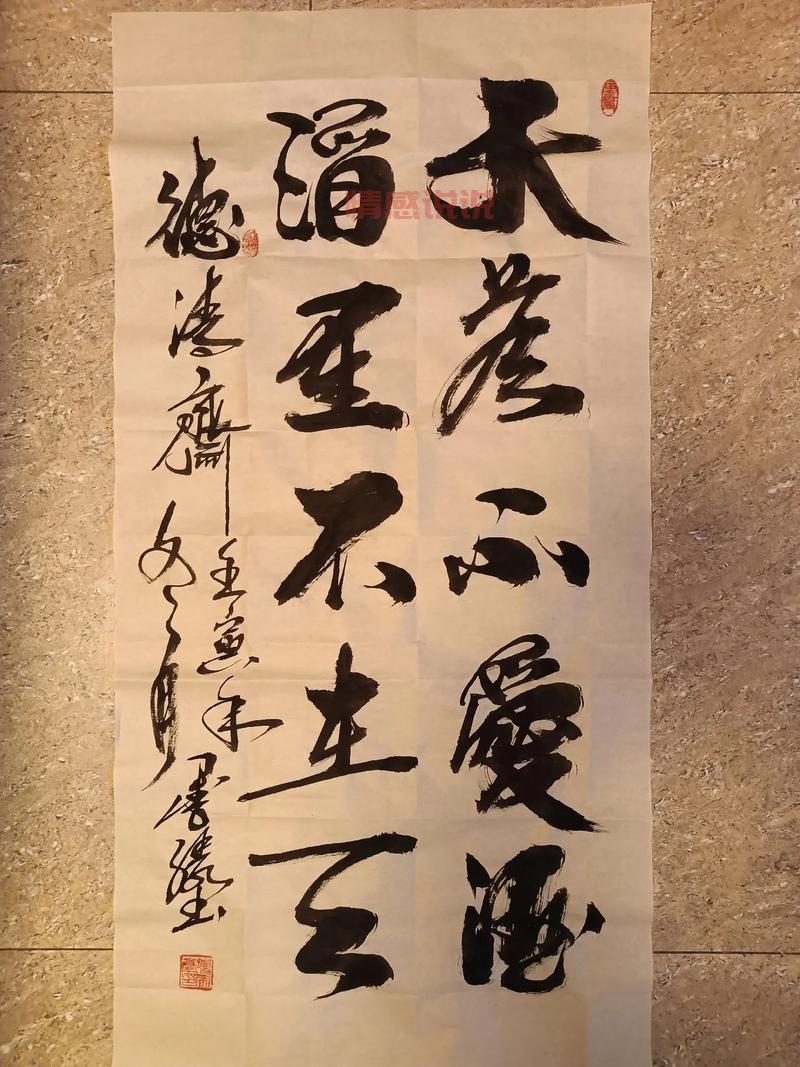 天若不愛酒
酒星不在天
德清齋
壬寅年
冬月
情感说说